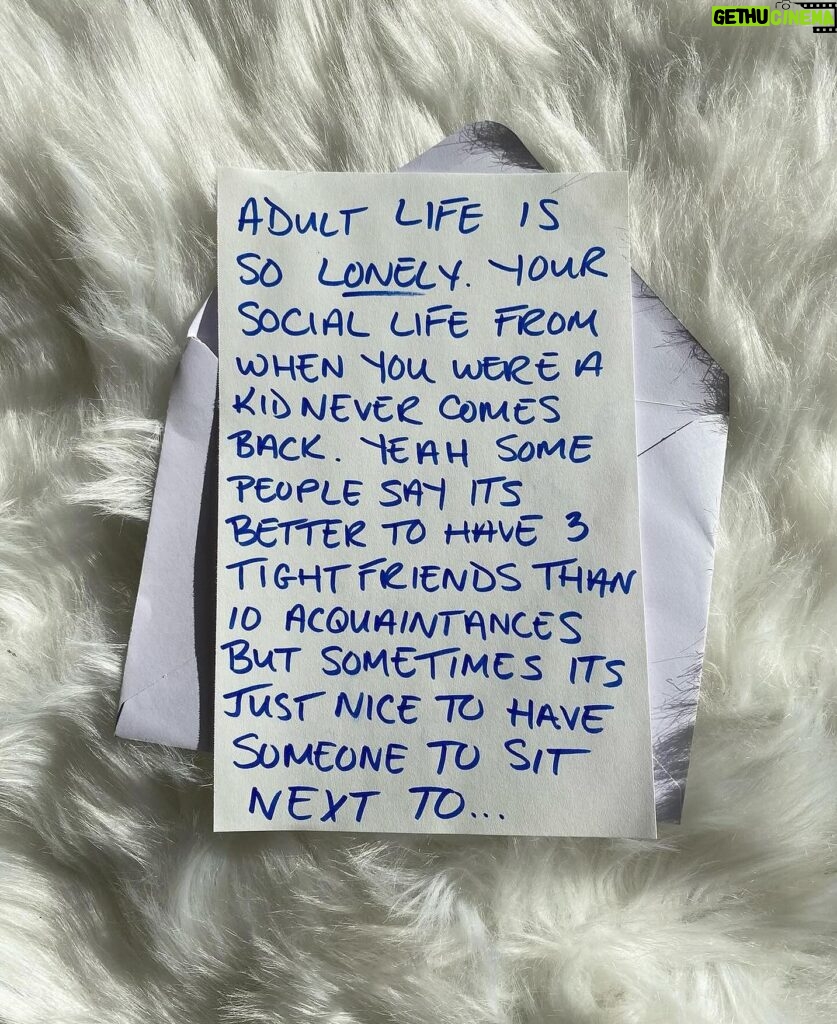 GETHUCINEMA
ADULT LIFE IS
SO LONELY. YOUR
SOCIAL LIFE FROM
WHEN YOU WERE A
KID NEVER COMES
BACK. YEAH SOME
PEOPLE SAY ITS
BETTER TO HAVE 3
TIGHT FRIENDS THAN
10 ACQUAINTANCES
BUT SOMETIMES ITS
JUST NICE TO HAVE
SOMEONE TO SIT
NEXT TO...